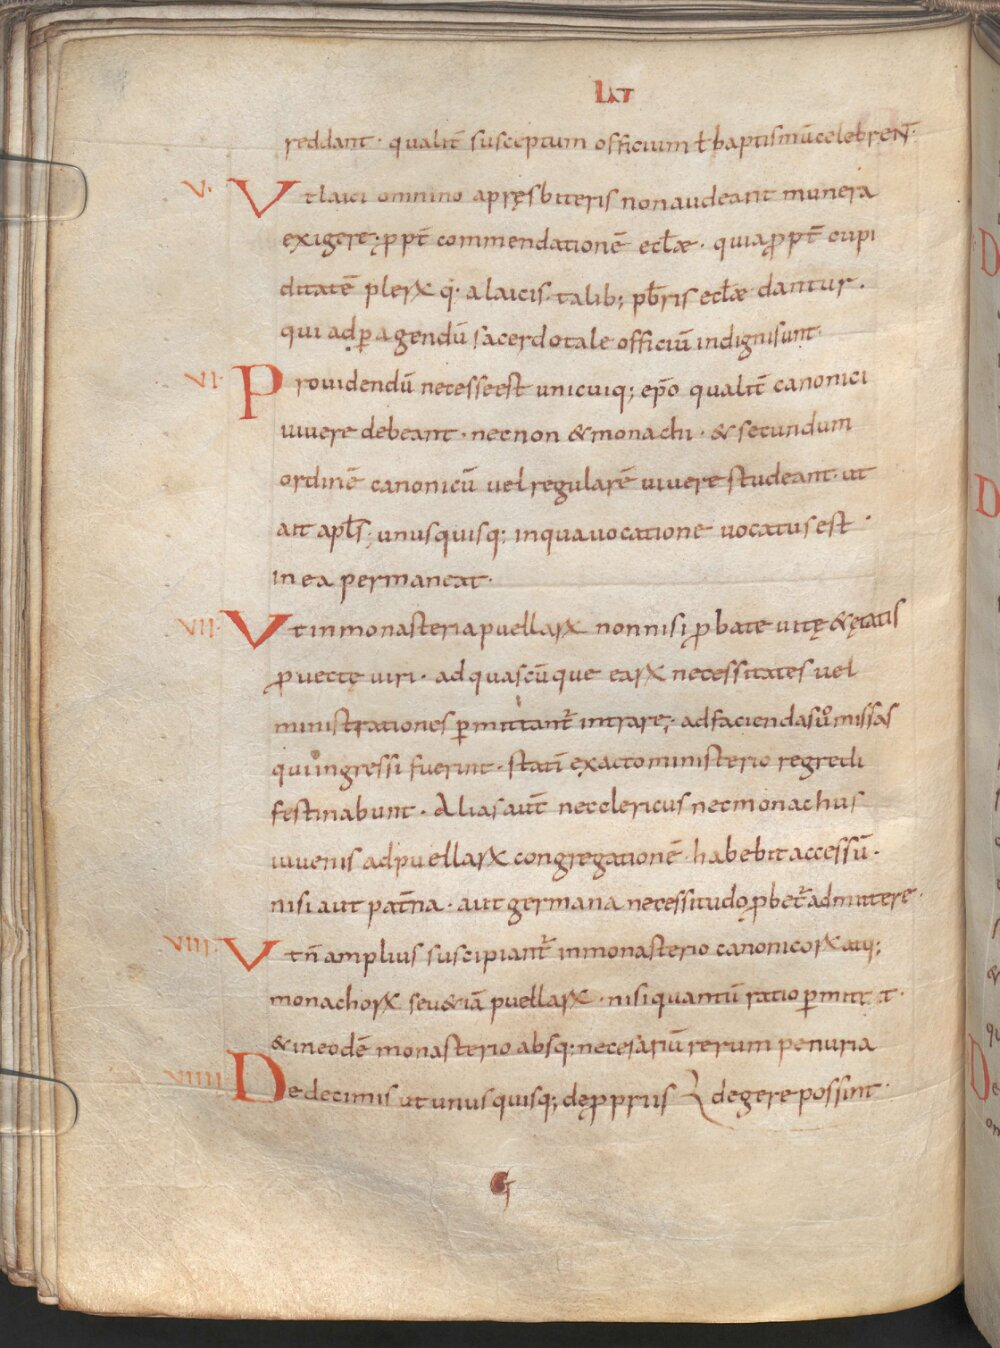 LXT
reddant · qualit̄ susceptum officium ł baptismū celebreNT̄
V. Vt laici omnino a pręsbiteris non audeant munera
exigere; ꝓpt̄ commendationē eccłae · quia ꝓpt̄ cupi
ditatē pleRX q̇· a laicis talib; p̄b̄ris eccłae dantur .
qui ad ꝑagendū sacerdotale officiū indigni sunt·
VI· Prouidendū necesse est unicuiq; ep̄o qualit̄ canonici
uiuere debeant · nec non & monachi · & secundum
ordinē canonicū uel regularē uiuere studeant · ut
ait aplſ; unusquisq; in qua uocatione uocatus est ·
in ea permaneat·
VII· Vt in monasteria puellaRX non nisi ꝓbate uitę & ętatis
ꝓuectę uiri · ad quascūque eaRX necessitates uel
ministrationes ꝑmittant᷑ intrare; ad faciendas ůº missas
qui ingressi fuerint · statī exacto ministerio regredi
festinabunt · Alias aut̄ nec clericus nec monachus
iuuenis ad puellaRX congregationē · habebit accessū ·
nisi aut pat̄na · aut germana necessitudo ꝓbet᷑ admittere ·
VIII· Vt n̄ amplius suscipiant᷑ in monasterio canonicoRX atq;
monachoRX seu &iā puellaRX · nisi quantū ratio ꝑmittit ·
& in eodē monasterio absq; necessariū rerum penuria
VIIII De decimis ut unusquisq; de ꝓpriis degere possint ·
G